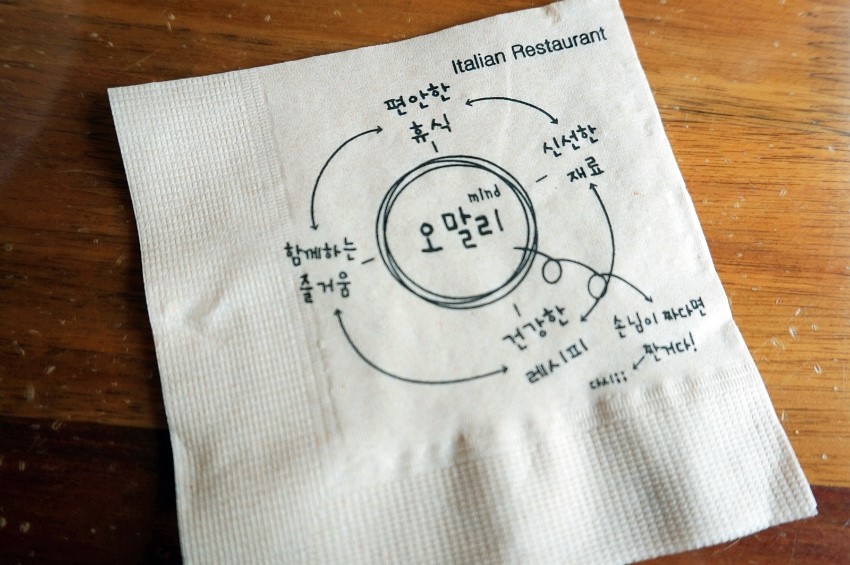 Italian Restaurant
편안한
휴식
신선한
재료
mind
오말리
함께하는
즐거움
건강한
레시피
손님이 짜다면
짠거다!
다시;;